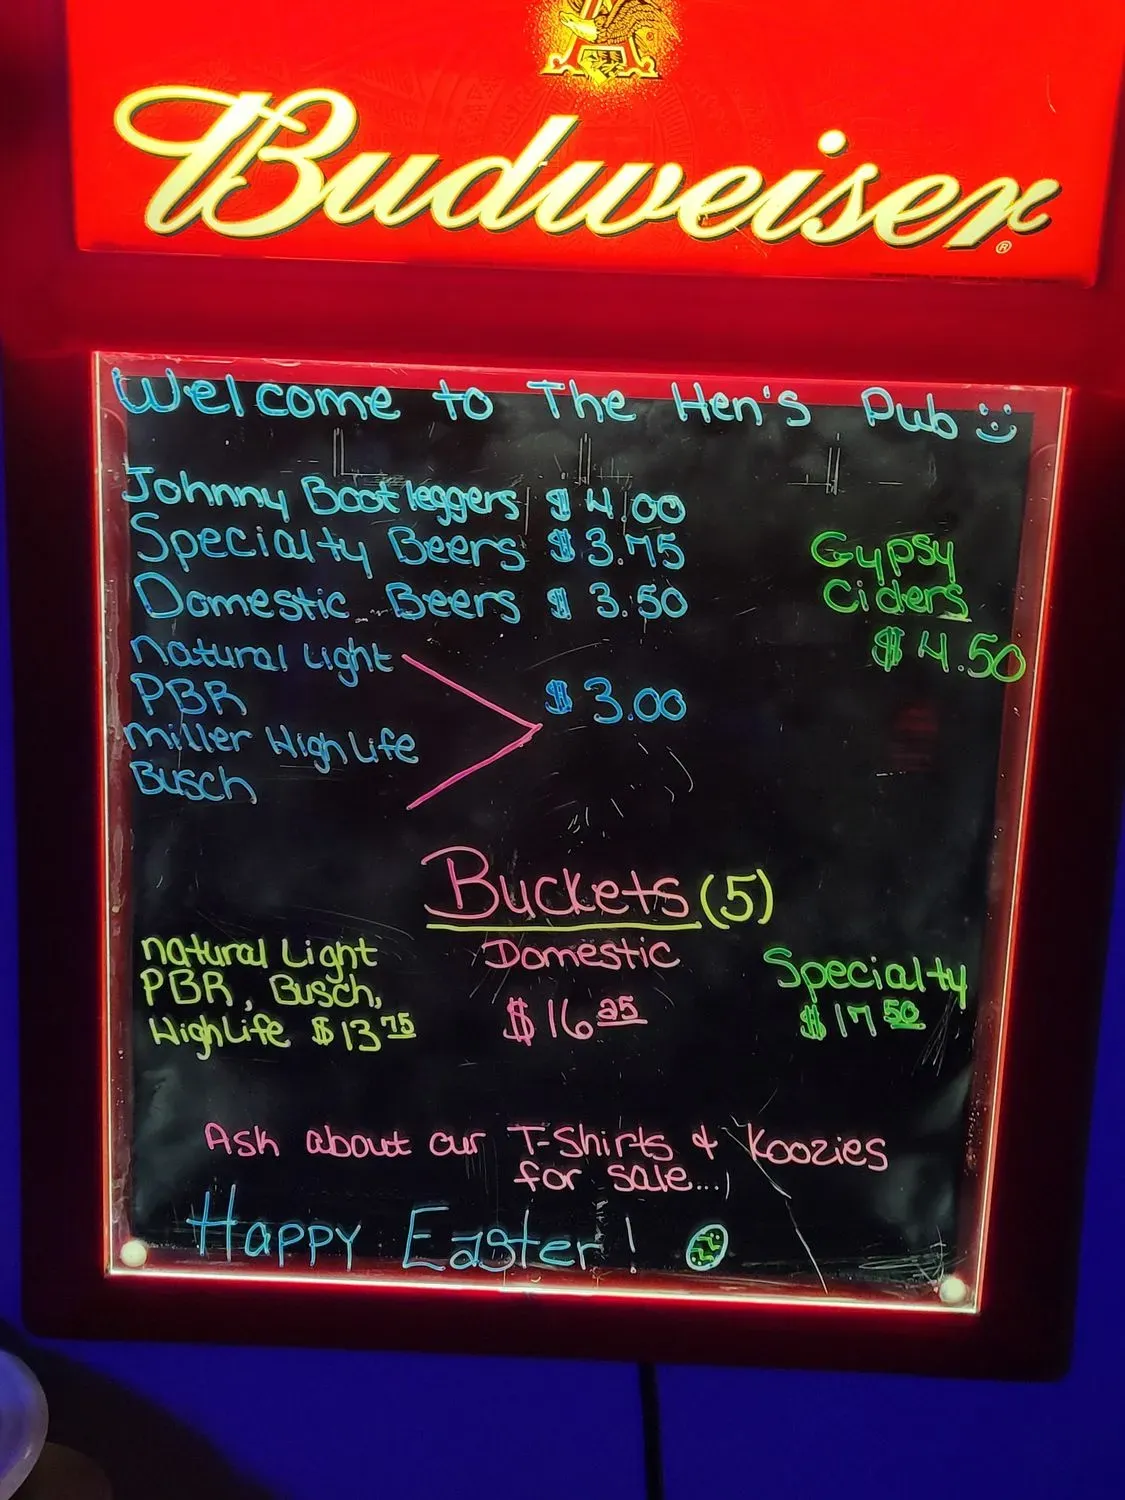 Budweiser®
Welcome to The Hen's Pub
Johnny Bootleggers $4.00
Specialty Beers $3.75
Domestic Beers $3.50
Gypsy
Ciders
$4.50
Natural Light
PBR
Miller High Life
Busch
$3.00
Buckets (5)
Natural Light
PBR, Busch,
High Life $13.75
Domestic
$16.25
Specialty
$17.50
Ask about our T-Shirts & Koozies
for sale...
Happy Easter!